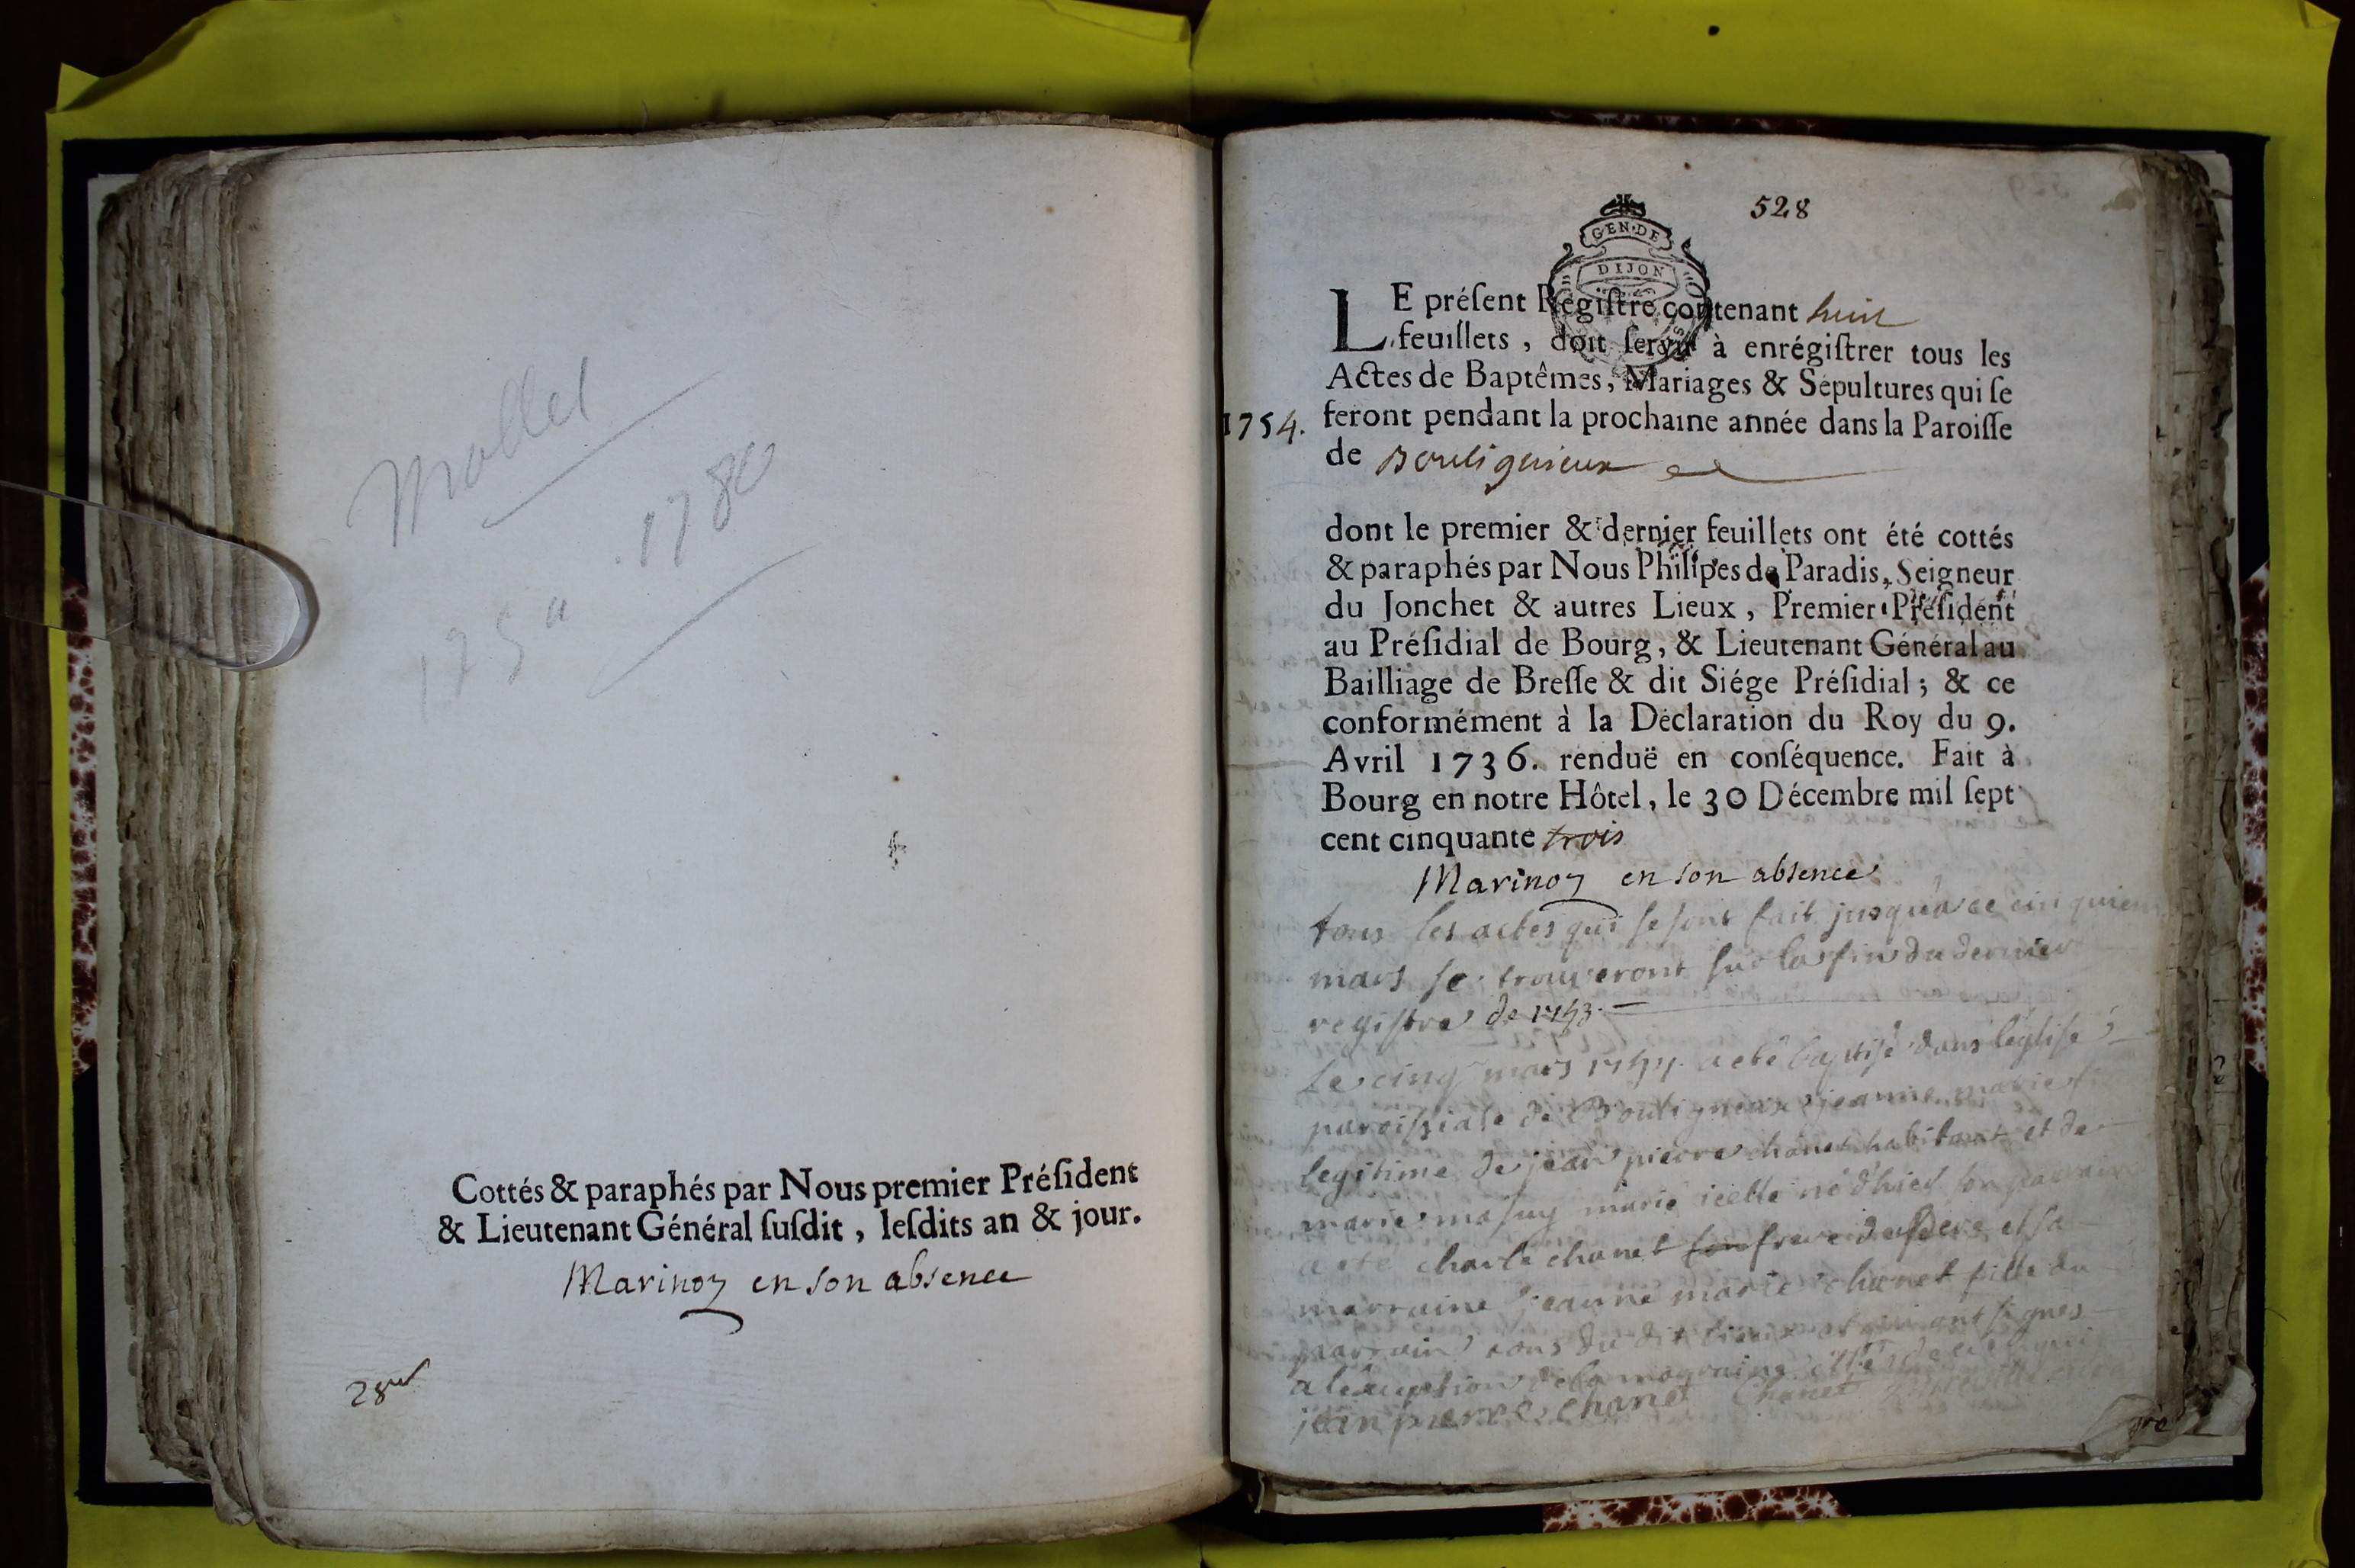 Mollet
1780
Cottés & paraphés par Nous premier Préſident
& Lieutenant Général ſuſdit, leſdits an & jour.
Marinoz en son absence
528
GEN·DE
DIJON
LE préſent Régiſtre contenant huit
feuillets, doit ſervir à enrégiſtrer tous les
Actes de Baptêmes, Mariages & Sépultures qui ſe
1754. feront pendant la prochaine année dans la Paroiſſe
de Bouligneux
dont le premier & dernier feuillets ont été cottés
& paraphés par Nous Philipes de Paradis, Seigneur
du Jonchet & autres Lieux, Premier Préſident
au Préſidial de Bourg, & Lieutenant Général au
Bailliage de Breſſe & dit Siége Préſidial; & ce
conformément à la Déclaration du Roy du 9.
Avril 1736. renduë en conſéquence. Fait à
Bourg en notre Hôtel, le 30 Décembre mil ſept
cent cinquante trois
Marinoz en son absence
tous les actes qui se sont fait jusqu'a ce cinquiem
mars se trouveront sur la fin du dernier
registre de 1753.
Le cinq mars 1754. a eté baptisé dans l'église
paroissiale de Bouligneux jeanne marie
legitime de jean pierre chanet habitant et de
marie masuy marie icelle né d'hier son parrain
a eté charle chanet son frere et sa
marraine jeanne marie chanet fille du
parrain tous du dit lieux et qui ont signes
a l'exception de la marraine
jean pierre chanet Chanet